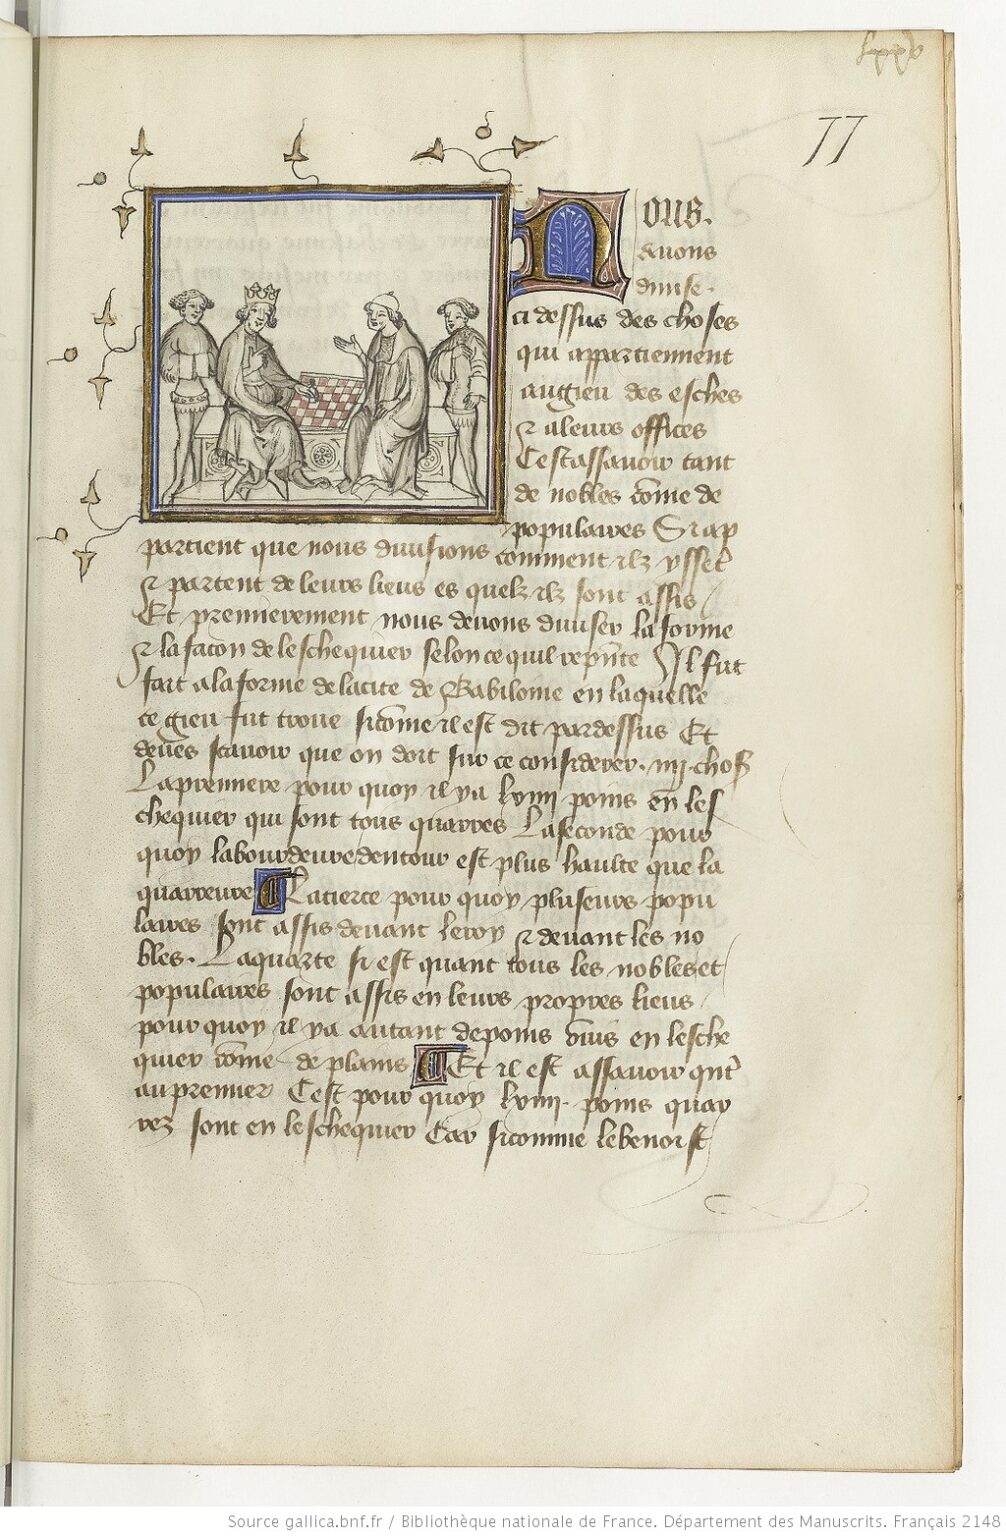 lxxv
77
Nous.
avons
divise.
ci dessus des choses
qui appartiennent
au gieu des esches
⁊ a leurs offices
Cest assavoir tant
de nobles cōme de
populaires Si ap
partient que nous divisions comment ilz yssēt
⁊ partent de leurs lieus es quelz ilz sont assis
Et premierement nous devons diviser la forme
⁊ la facon de leschequier selon ce quil rep̄nte Il fut
fait a la forme de la cite de Babilonie en laquelle
ce gieu fut trouve sicōme il est dit par dessus Et
deves scavoir que on doit sur ce considerer .iiij. choses
La premiere pour quoy il y a lxiiij poins en les
chequier qui sont tous quarres La seconde pour
quoy la bourdeure dentour est plus haulte que la
quarreure La tierce pour quoy plusieurs popu
laires sont assis devant le roy ⁊ devant les no
bles. La quarte si est quant tous les nobles et
populaires sont assis en leurs propres lieus
pour quoy il y a autant de poins vuis en lesche
quier cōme de plains Et il est assavoir qnt̄
au premier Cest pour quoy lxiiij. poins quar
rez sont en leschequier Car si comme le benoist
Source gallica.bnf.fr / Bibliothèque nationale de France. Département des Manuscrits. Français 2148